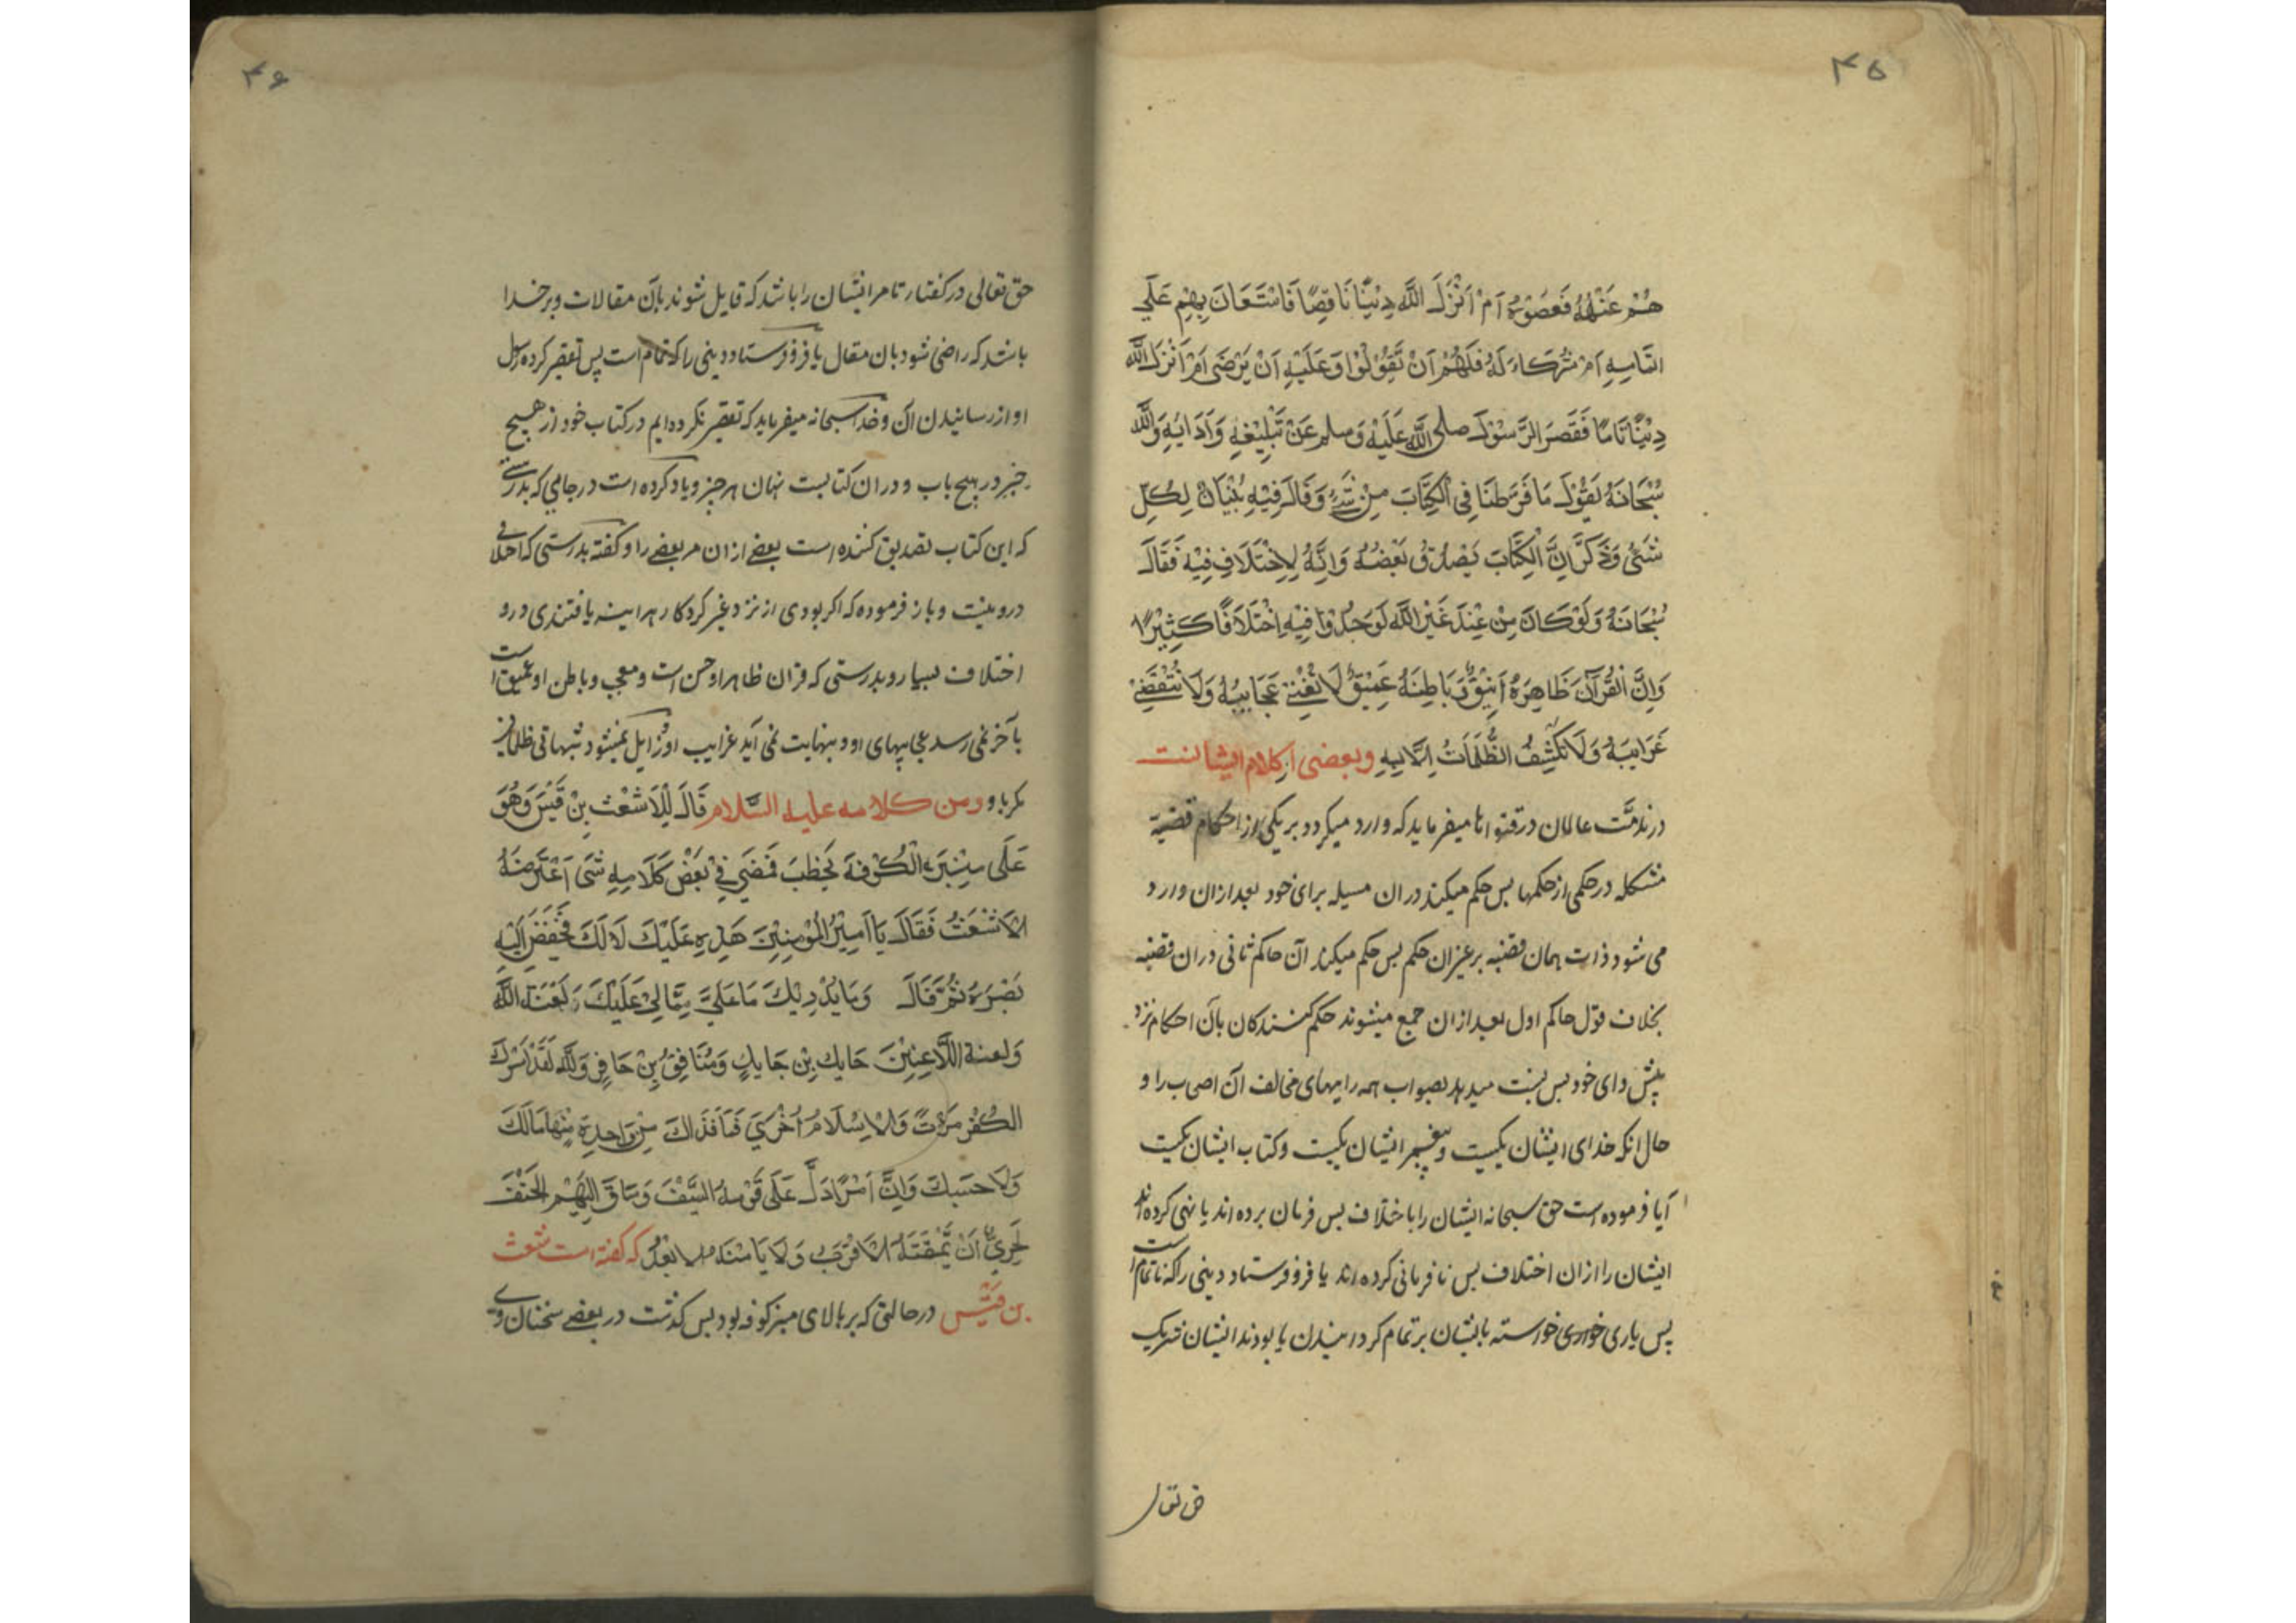 ۴۵
هُمْ عَنْهُ فَعَصَوْهُ اَمْ اَنْزَلَ اللَّهُ دِيْنًا نَاقِصًا فَاسْتَعَانَ بِهِمْ عَلَى
اتمامِهِ اَمْ شُرَكَاءَ لَهُ فَلَهُمْ اَنْ تَقُوْلُوْا وَعَلَيْهِ اَنْ يَرْضَى اَمْ اَنْزَلَ اللَّه
دِيْنًا تَامًا فَقَصَرَ الرَّسُوْلُ صلى اللَّه عَلَيْهِ وَسلم عَنْ تَبْلِيْغِهِ وَاَدَايِهِ وَاللَّه
سُبْحَانَهُ يَقُوْلُ مَا فَرَّطنَا فِى الْكِتَابَ مِنْ شَيْءٍ وَقَالَ فِيْهِ تِبْيَانٌ لِكُلِّ
شَىْءٍ وَذَكَرَ اِنَّ الْكِتَابَ يَصْدُقُ بَعْضُهُ وَاِنَّهُ لِاِخْتَلَافِ فِيْهِ فَقَالَ
سُبْحَانَهُ وَلَوْ كَانَ مِنْ عِنْدَ غَيْرِ اللَّهِ لَوَجَدُوْا فِيْهِ اِخْتَلَافًا كَثِيْرًا
وَاِنَّ الْقُرْآنَ ظَاهِرَهُ اَنِيْقٌ وَبَاطِنَهُ عَمِيْقٌ لَا تُفْنِى عَجَايِبُهُ وَلَا تُنْقَضِىْ
غَرَايِبَهُ وَلَا تُكْشِفُ الظُّلُمَاتُ اِلَّا بِهِ وبعضى از كلام ايشانست
در ندمّت عالمان در فتواها ميفرمايد كه وارد ميكردد بر يكى از احكام قضية
مشكله در حكمى از حكمها بس حكم ميكند در ان مسيله براى خود بعد ازان وارد
مى شود ذات همان قضيه بر غيران حكم بس حكم ميكند آن حاكم ثانى در ان قضيه
بخلاف قول حاكم اول بعد ازان جمع ميشوند حكم كنندكان بآن احكام نزد
پيش واى خود بس نسبت ميدهد بصواب همه رايهاى مخالف آن اصحاب را و
حال انكه خداى ايشان يكيست و پيغمبر ايشان يكيست و كتاب ايشان يكيست
آيا فرموده است حق سبحانه ايشان را باختلاف بس فرمان برده اند يا نهى كرده اند
ايشان را ازان اختلاف بس نافرمانى كرده اند يا فرو فرستاد دينى را كه ناتمام است
پس يارى خواسته بايشان بر تمام كردانيدن يا بودند ايشان شريك
حق تعالى
۴۶
حق تعالى در كفتار تا مر ايشان را باشد كه قايل شوند بآن مقالات و بر خدا
باشد كه راضى شود بان مقال يا فرو فرستاد دينى را كه تمام است پس تقصير كرده رسول
او از رسانيدن آن و خدا سبحانه ميفرمايد كه تقصير نكرده ايم در كتاب خود از هيچ
چيز در هيچ باب و در ان كتابست بيان هر چيز و ياد كرده است در جايى كه بدرستى
كه اين كتاب تصديق كننده است بعضى ازان مر بعضى را و كفته بدرستى كه اختلافى
درو نيست و باز فرموده كه اكر بودى از نزد غير كردكار هر اينه يافتندى درو
اختلاف بسيار و بدرستى كه قران ظاهر او حسن است و معجب و باطن او عميق است
بآخر نمى رسد عجايبهاى او و بنهايت نمى آيد غرايب او و زايل نميشود شبهاتى ظلمانى
مكر باو ومن كلامه عليه السّلام قَالَ لِلْاَشْعْثِ بِنْ قَيْسَ وَهُوَ
عَلَى مِنْبَرِ الْكُوْفَهَ يَخْطُبَ فَمَضَى فِىْ بَعْضِ كَلَامِهِ شَىْءٌ اَعْتَرَضَهُ
الْاَشْعَثُ فَقَالَ يَا اَمِيْرَ الْمُؤْمِنِيْنَ هَذِهِ عَلَيْكَ لَا لَكَ فَخَفَضَ اِلَيْهِ
بَصَرَهُ ثُمَّ قَالَ وَمَا يُدْرِيْكَ مَا عَلَيَّ مِمَّا لِىْ عَلَيْكَ لَعْنَة اللَّه
وَلعنة اللَّاعِنِيْنَ حَايِك بِنْ حَايِكٍ وَمُنَافِقُ بِنْ كَافِرٍ وَاللَّه لَقَدْ اَسَرَكَ
الْكُفْرُ مَرّةً وَالْاِسْلَامُ اُخْرَىَ فَمَا فَدَاكَ مِنْ وَاحِدةٍ مِنْهَا مَالَكَ
وَلَا حَسَبكَ وَاِنَّ اَمْرًا دَلَّ عَلَى قَوْمِهُ السَّيْفَ وَسَاقَ اِلَيْهِمْ الْحَتْفَ
لَحَرِىٌّ اَنْ يَمْقَتَهُ الْاَقْرَبُ وَلَا يَامَنَهُ الْابْعَدُ كه كفته است شعث
بن قيس در حالتى كه بر بالاى منبر كوفه بود بس كذشت در بعضى سخنان وى